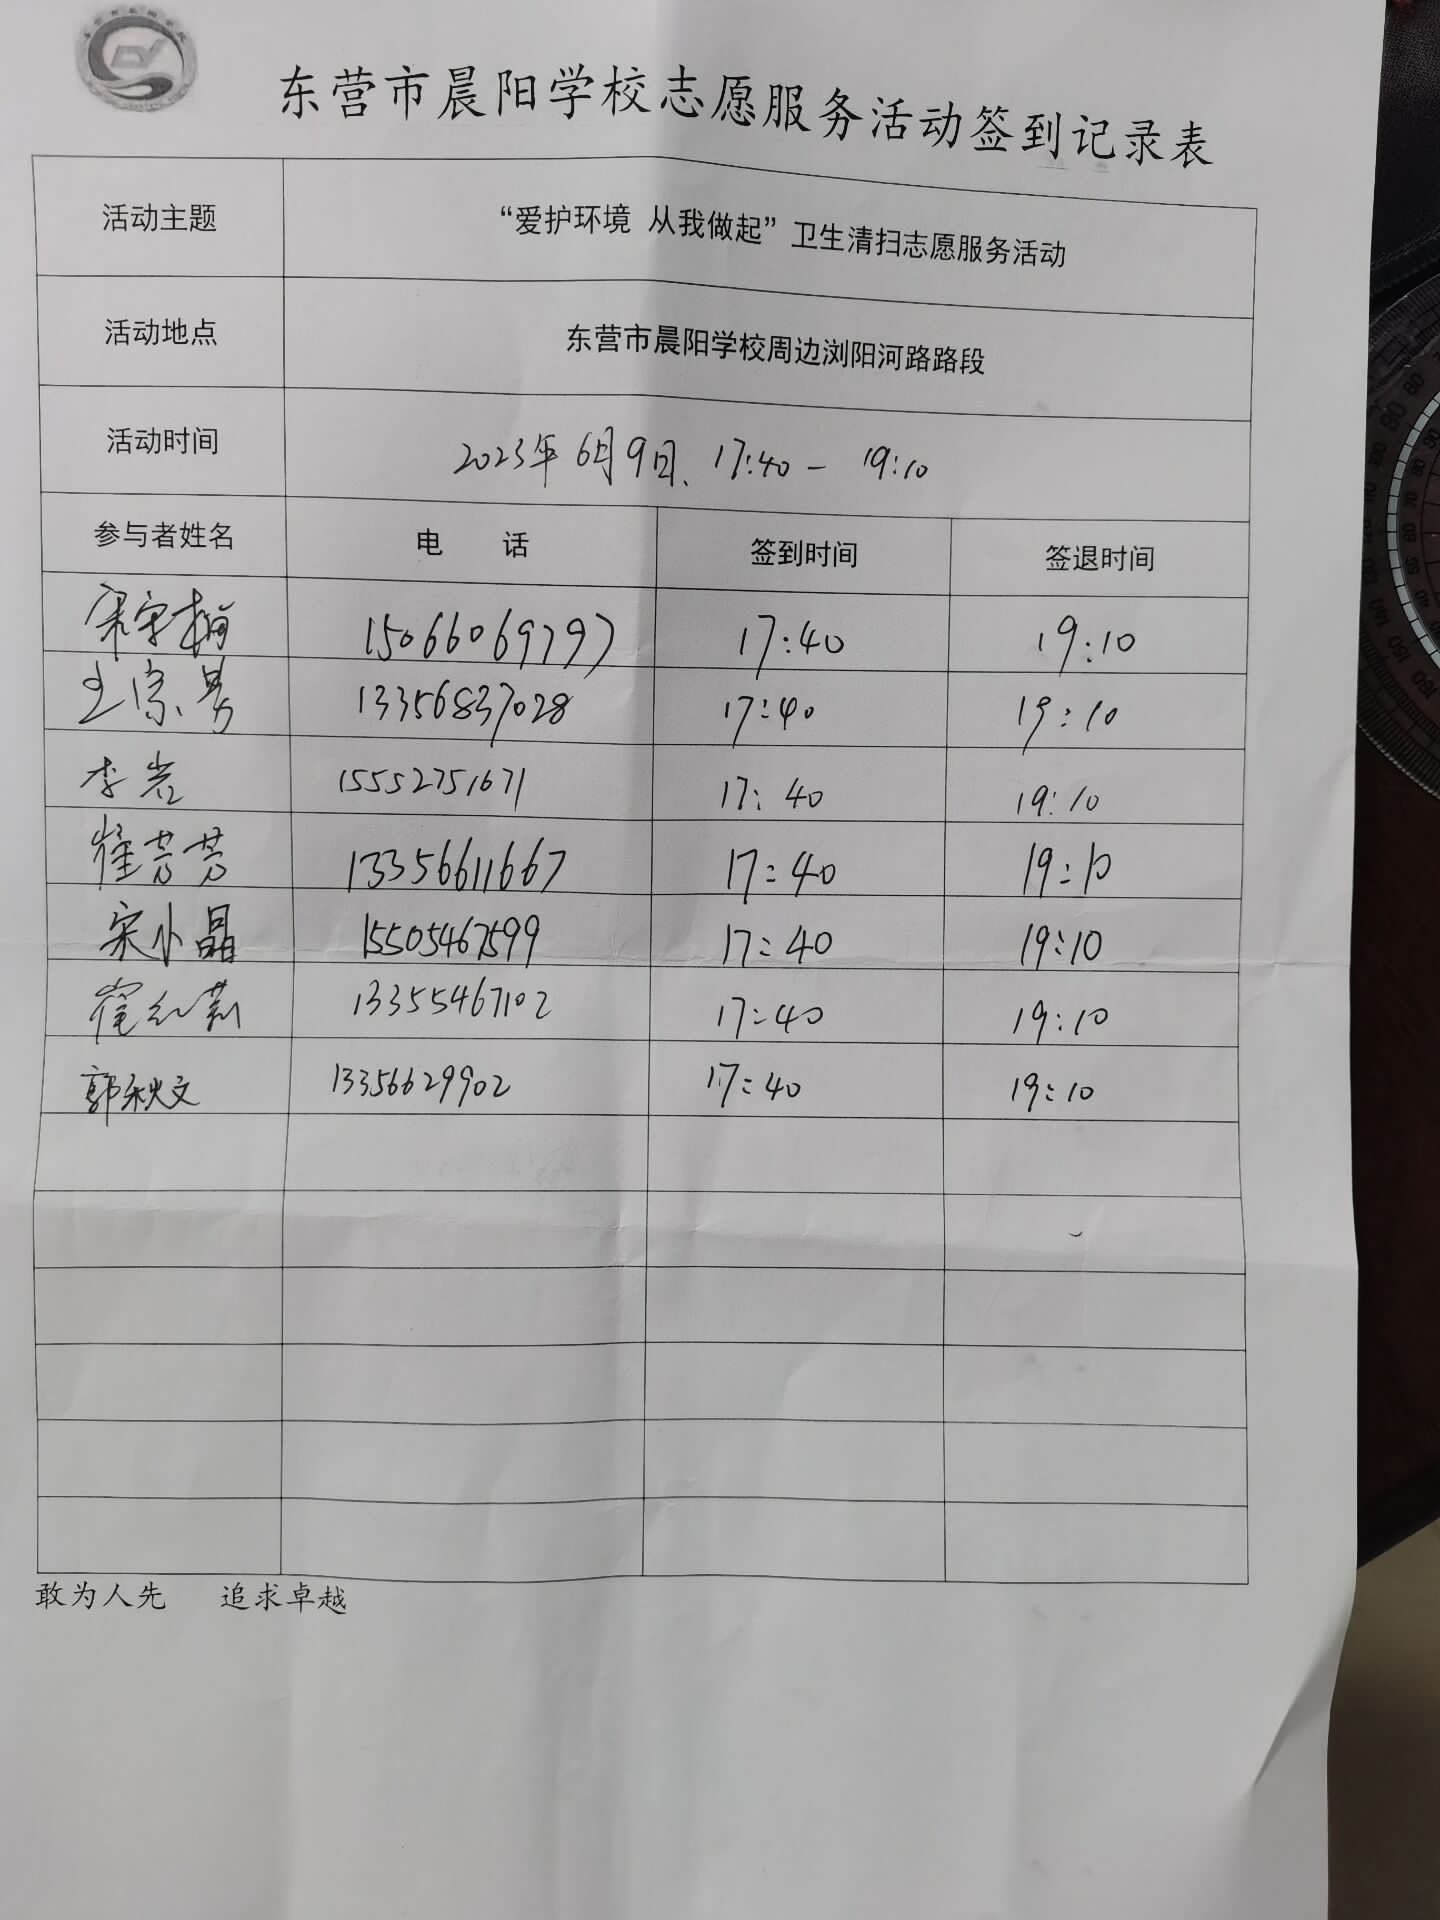 东营市晨阳学校志愿服务活动签到记录表
活动主题 “爱护环境 从我做起”卫生清扫志愿服务活动
活动地点 东营市晨阳学校周边浏阳河路路段
活动时间 2023年6月9日、17:40－19:10
参与者姓名 电 话 签到时间 签退时间
15066069797 17:40 19:10
王宗 13356837028 17:40 19:10
李岩 15552751671 17:40 19:10
崔芳芳 13356611667 17:40 19:10
宋小晶 15505467599 17:40 19:10
崔红莉 13355467102 17:40 19:10
郭秋文 13356629902 17:40 19:10
敢为人先 追求卓越